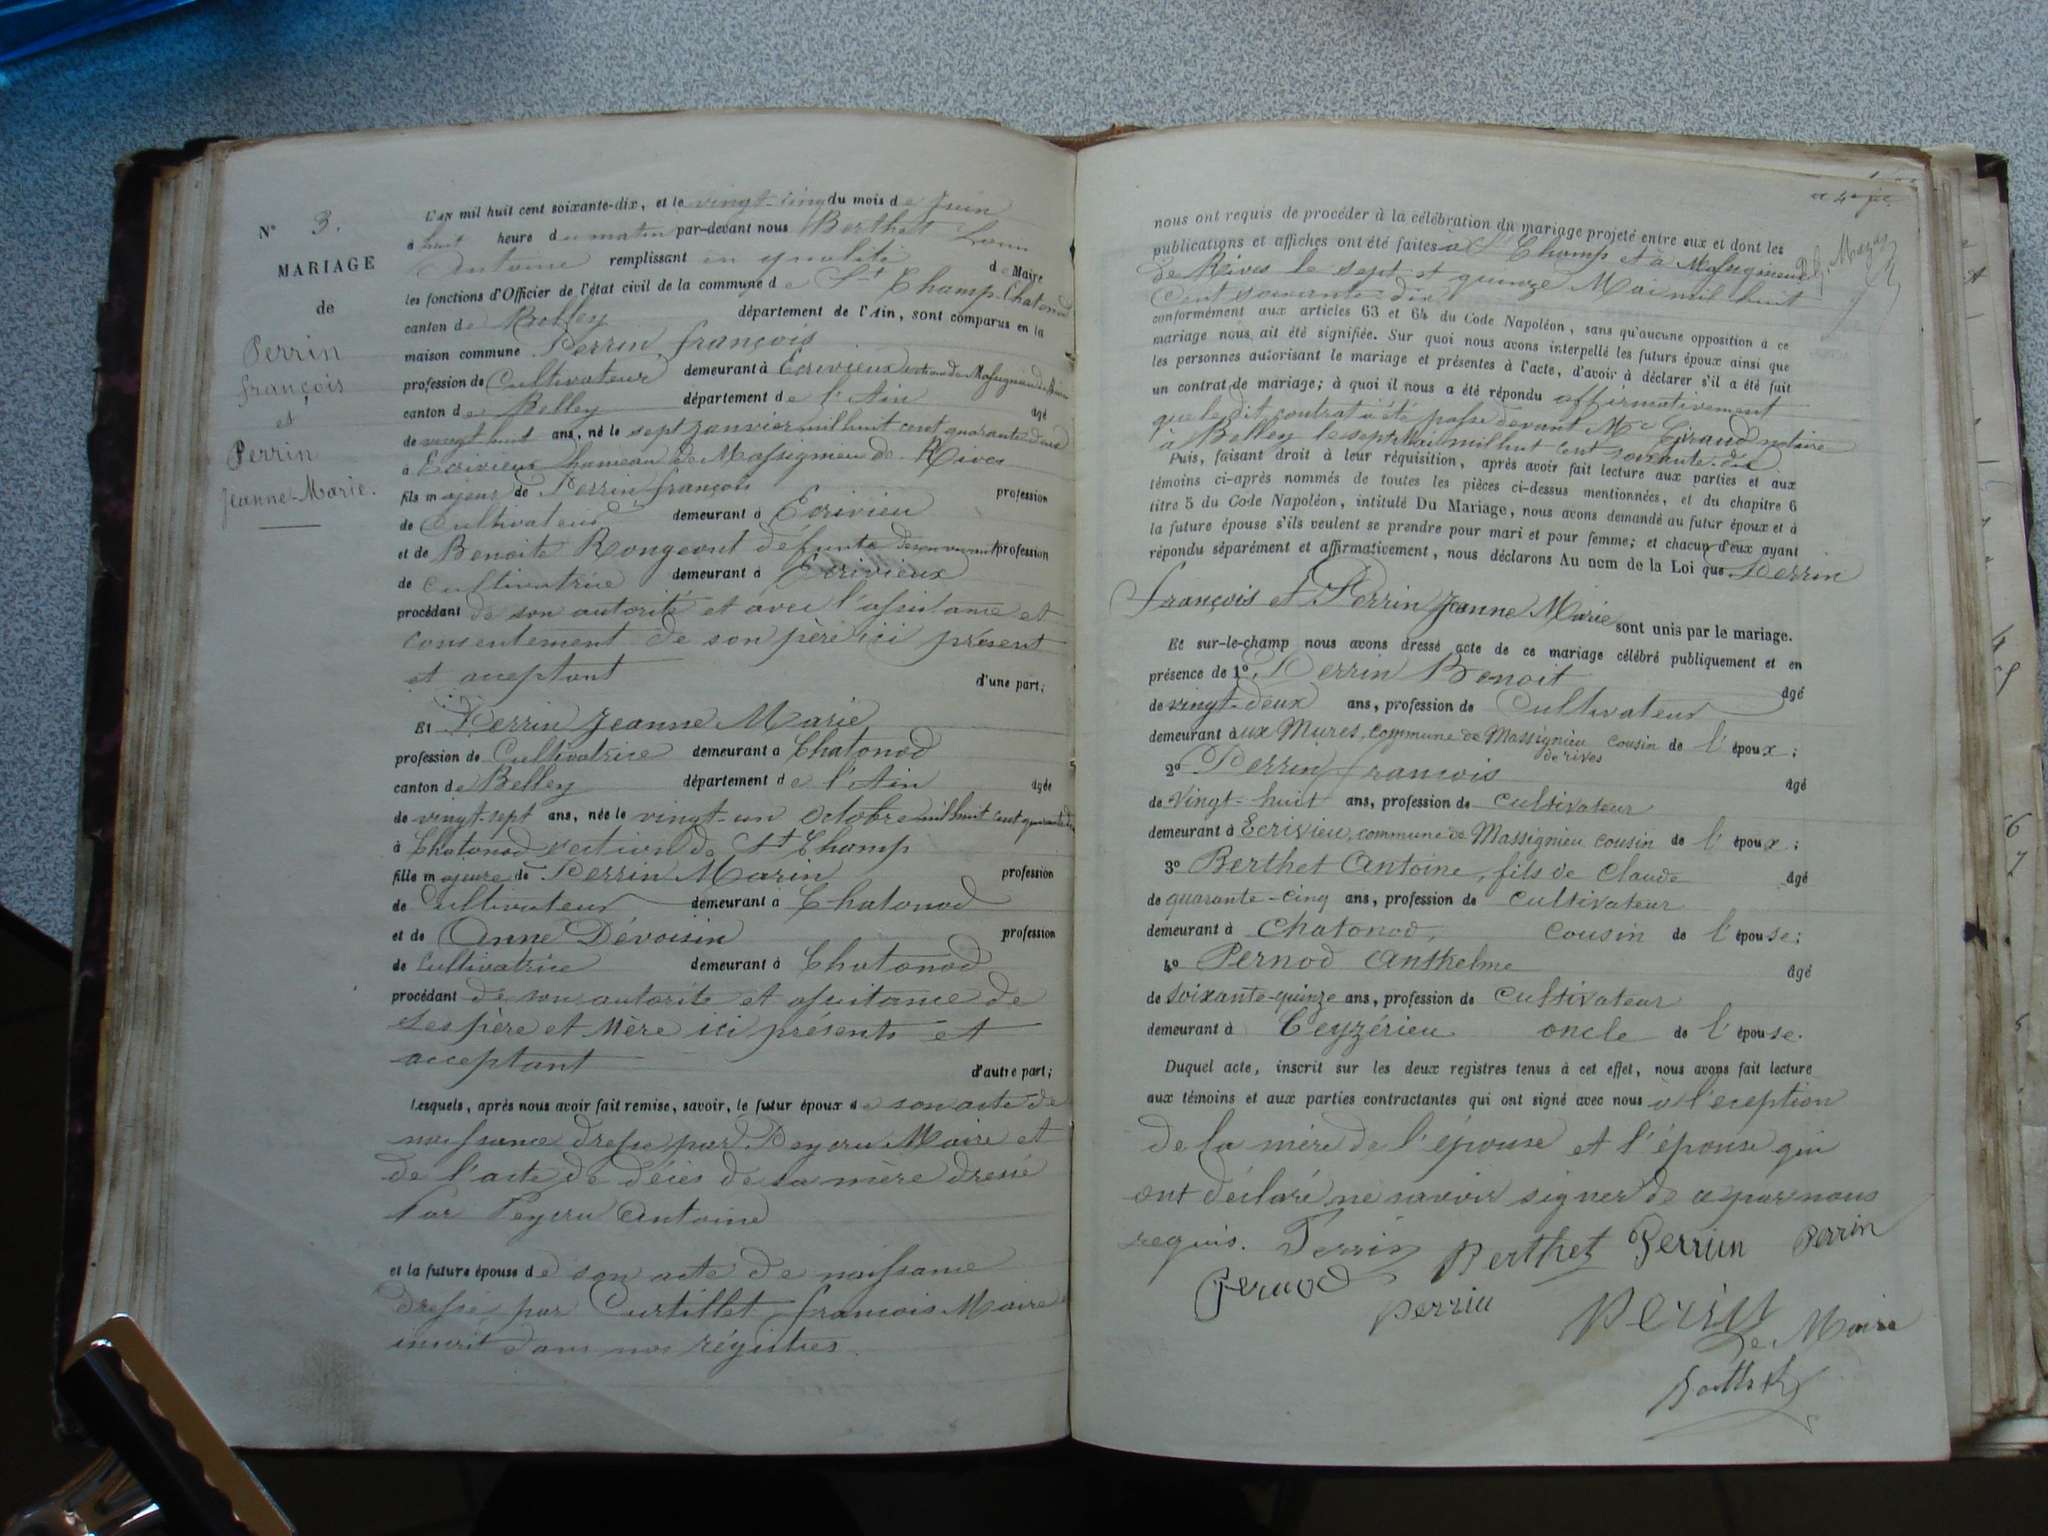 N° 3.
MARIAGE
de
Perrin
françois
et
Perrin
Jeanne-Marie.
L'an mil huit cent soixante-dix, et le vingt-cinq du mois de Juin
à huit heure du matin par-devant nous Berthet Louis
Antoine remplissant en qualité de Maire
les fonctions d'Officier de l'état civil de la commune de St Champ Chatonod
canton de Belley département de l'Ain, sont comparus en la
maison commune Perrin françois
profession de Cultivateur demeurant à Ecrivieux section de Massignieu de Rives
canton de Belley département de l'Ain âgé
de vingt huit ans, né le sept janvier mil huit cent quarante deux
à Ecrivieux hameau de Massignieu de Rives
fils majeur de Perrin françois profession
de Cultivateur demeurant à Ecrivieu
et de Benoite Rongeout défunte de son vivant profession
de cultivatrice demeurant à Ecrivieux
procédant de son autorité et avec l'assistance et
consentement de son père ici présent
et acceptant d'une part;
Et Perrin Jeanne Marie
profession de Cultivatrice demeurant à Chatonod
canton de Belley département de l'Ain âgée
de vingt-sept ans, née le vingt-un octobre mil huit cent quarante deux
à Chatonod section de St Champ
fille majeure de Perrin Marin profession
de Cultivateur demeurant à Chatonod
et de Anne Dévoisin profession
de Cultivatrice demeurant à Chatonod
procédant de son autorité et assistance de
ses père et Mère ici présents et
acceptant d'autre part;
Lesquels, après nous avoir fait remise, savoir, le futur époux de son acte de
naissance dressé par Peycru Maire et
de l'acte de décès de sa mère dressé
Par Peycru Antoine
et la future épouse de son acte de naissance
dressé par Curtillet françois Maire
inscrit dans nos régistres
nous ont requis de procéder à la célébration du mariage projeté entre eux et dont les
publications et affiches ont été faites à St Champ et à Massignieu
de Rives le sept et quinze Mai mil huit
Cent soixante-dix
conformément aux articles 63 et 64 du Code Napoléon, sans qu'aucune opposition à ce
mariage nous ait été signifiée. Sur quoi nous avons interpellé les futurs époux ainsi que
les personnes autorisant le mariage et présentes à l'acte, d'avoir à déclarer s'il a été fait
un contrat de mariage; à quoi il nous a été répondu affirmativement
que le dit contrat a été passé devant Me Giraud notaire
à Belley le sept Mai mil huit cent soixante-dix
Puis, faisant droit à leur réquisition, après avoir fait lecture aux parties et aux
témoins ci-après nommés de toutes les pièces ci-dessus mentionnées, et du chapitre 6
titre 5 du Code Napoléon, intitulé Du Mariage, nous avons demandé au futur époux et à
la future épouse s'ils veulent se prendre pour mari et pour femme; et chacun d'eux ayant
répondu séparément et affirmativement, nous déclarons Au nom de la Loi que Perrin
françois et Perrin Jeanne Marie sont unis par le mariage.
Et sur-le-champ nous avons dressé acte de ce mariage célébré publiquement et en
présence de 1° Perrin Benoit âgé
de vingt-deux ans, profession de Cultivateur
demeurant aux Mures, commune de Massignieu de rives cousin de l'époux;
2° Perrin francois âgé
de vingt-huit ans, profession de cultivateur
demeurant à Ecrivieu, commune de Massignieu cousin de l'époux;
3° Berthet Antoine, fils de Claude âgé
de quarante-cinq ans, profession de cultivateur
demeurant à Chatonod, cousin de l'épouse;
4° Pernod Anthelme âgé
de soixante-quinze ans, profession de cultivateur
demeurant à Ceyzérieu oncle de l'épouse.
Duquel acte, inscrit sur les deux registres tenus à cet effet, nous avons fait lecture
aux témoins et aux parties contractantes qui ont signé avec nous à l'eception
de la mère de l'épouse et l'épouse qui
ont déclaré ne savoir signer de ce par nous
requis. Perrin Berthet Perrin Perrin
Pernod Perrin Perrin
Le Maire
Berthet